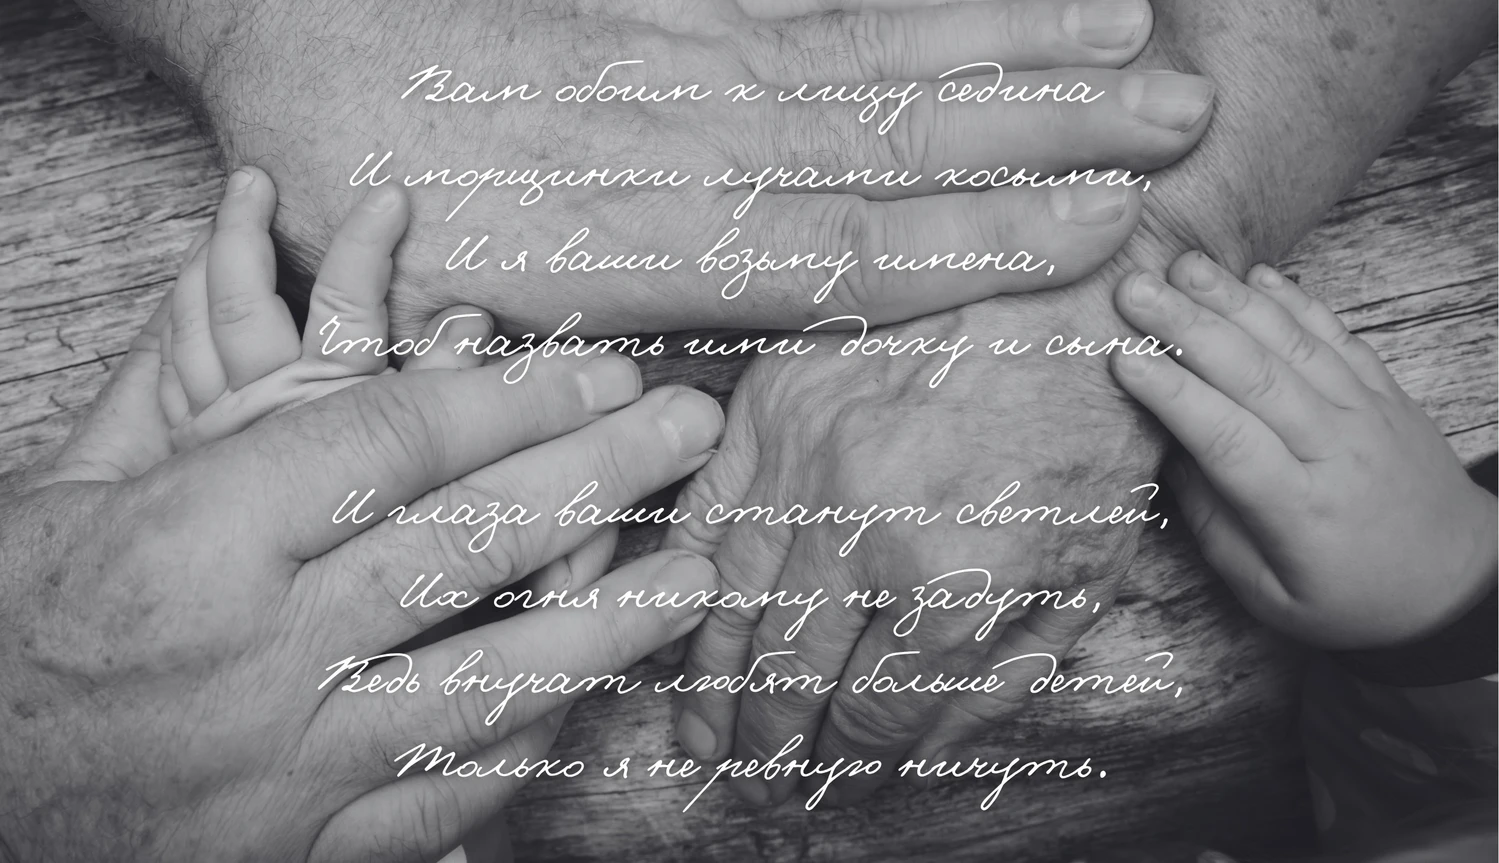 Вам обоим к лицу седина
И морщинки лучами косыми,
И я ваши возьму имена,
Чтоб назвать ими дочку и сына.
И глаза ваши станут светлей,
Их огня никому не задуть,
Ведь внучат любят больше детей,
Только я не ревную ничуть.